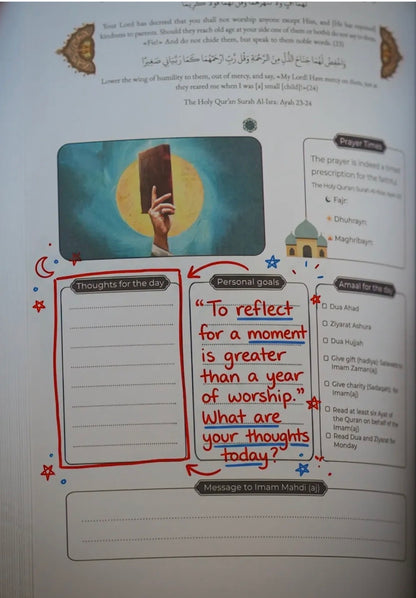 Your Lord has decreed that you shall not worship anyone except Him, and [He has enjoined]
kindness to parents. Should they reach old age at your side one of them or both: do not say to them,
«Fie!» And do not chide them, but speak to them noble words. (23)
وَاخْفِضْ لَهُمَا جَنَاحَ الذُّلِّ مِنَ الرَّحْمَةِ وَقُل رَّبِّ ارْحَمْهُمَا كَمَا رَبَّيَانِي صَغِيرًا
Lower the wing of humility to them, out of mercy, and say, «My Lord! Have mercy on them, just as
they reared me when I was [a] small [child]!»(24)
The Holy Qur'an Surah Al-Isra: Ayah 23-24
Prayer Times
The prayer is indeed a timed
prescription for the faithful.
The Holy Quran, Surah
Fajr:
Dhuhrayn:
Maghribayn:
Thoughts for the day
Personal goals
"To reflect
for a moment
is greater
than a year
of worship."
What are
your thoughts
today?
Amaal for the day
Dua Ahad
Ziyarat Ashura
Dua Hujjah
Give gift (hadiya): Salawat to
Imam Zaman(aj)
Give charity (Sadaqah), for
Imam(aj)
Read at least six Ayat of
the Quran on behalf of the
Imam(aj)
Read Dua and Ziyarat for
Monday
Message to Imam Mahdi (aj)